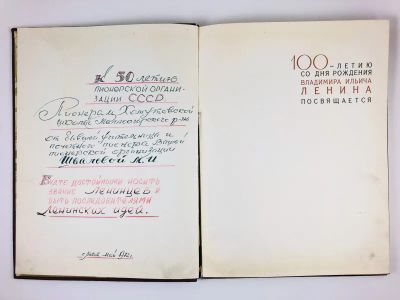 К 50 летию
пионерской органи-
зации СССР
Пионерам Хомутовской
школы
от бывшей учительницы и
почетного пионера
пионерской организации
Шваловой
Будте достойными носить
звание Ленинцев и
быть последователями
Ленинских идей.
май 1972г.
100-ЛЕТИЮ
СО ДНЯ РОЖДЕНИЯ
ВЛАДИМИРА ИЛЬИЧА
ЛЕНИНА
ПОСВЯЩАЕТСЯ